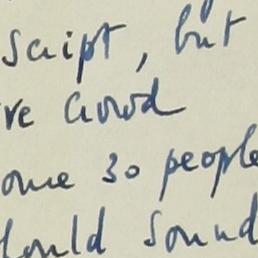 script, but
ve crowd
ome 30 people
hould sound